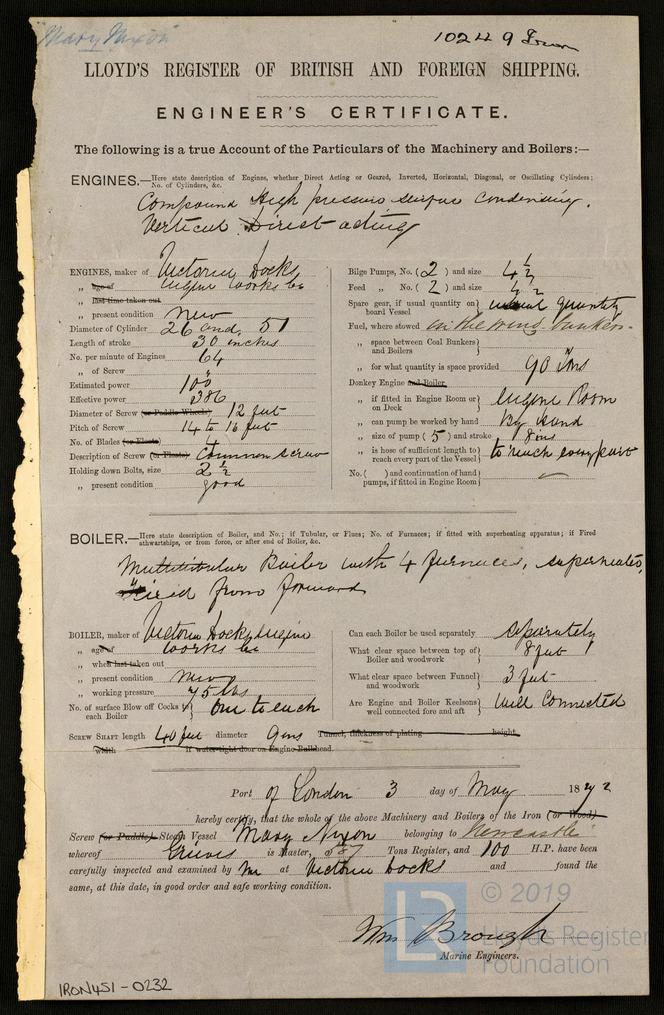 Mary Nixon
10249 Iron
LLOYD'S REGISTER OF BRITISH AND FOREIGN SHIPPING.
ENGINEER'S CERTIFICATE.
The following is a true Account of the Particulars of the Machinery and Boilers:—
ENGINES.—Here state description of Engines, whether Direct Acting or Geared, Inverted, Horizontal, Diagonal, or Oscillating Cylinders;
No. of Cylinders, &c.
Compound High pressure surface condensing.
Vertical Direct acting
ENGINES, maker of Victoria Docks
„ age of Engine Works Co
„ last time taken out
„ present condition New
Diameter of Cylinder 26 and 51
Length of stroke 30 inches
No. per minute of Engines 64
„ of Screw
Estimated power 100
Effective power 386
Diameter of Screw (or Paddle Wheels) 12 feet
Pitch of Screw 14 to 16 feet
No. of Blades (or Floats) 4
Description of Screw (or Floats) Common screw
Holding down Bolts, size 2 ½
„ present condition good
Bilge Pumps, No. (2) and size 4 ½
Feed „ No. (2) and size
Spare gear, if usual quantity on board Vessel usual quantity
Fuel, where stowed in the wing bunkers
„ space between Coal Bunkers and Boilers
„ for what quantity is space provided 90 Tons
Donkey Engine and Boiler
„ if fitted in Engine Room or on Deck Engine Room
„ can pump be worked by hand By hand
„ size of pump (5) and stroke 8 ins
„ is hose of sufficient length to reach every part of the Vessel to reach every part
No. ( ) and continuation of hand pumps, if fitted in Engine Room
BOILER.—Here state description of Boiler, and No.; if Tubular, or Flues; No. of Furnaces; if fitted with superheating apparatus; if Fired
athwartships, or from force, or after end of Boiler, &c.
Multitubular Boiler with 4 furnaces, superheater,
Fired from forward
BOILER, maker of Victoria Docks Engine
„ age of Works Co
„ when last taken out
„ present condition New
„ working pressure 75 lbs
No. of surface Blow off Cocks to each Boiler One to each
Can each Boiler be used separately separately
What clear space between top of Boiler and woodwork 8 feet
What clear space between Funnel and woodwork 3 feet
Are Engine and Boiler Keelsons well connected fore and aft Well Connected
SCREW SHAFT length 40 feet diameter 9 ins Tunnel, thickness of plating height,
width if water-tight door on Engine Bulkhead.
Port of London 3 day of May 1872
hereby certify, that the whole of the above Machinery and Boilers of the Iron (or Wood)
Screw (or Paddle) Steam Vessel Mary Nixon belonging to Newcastle
whereof Grieves is Master, 587 Tons Register, and 100 H.P. have been
carefully inspected and examined by me at Victoria Docks and found the
same, at this date, in good order and safe working condition.
Wm Brough
Marine Engineers.
© 2019
LR
Lloyd's Register
Foundation
IRON451-0232